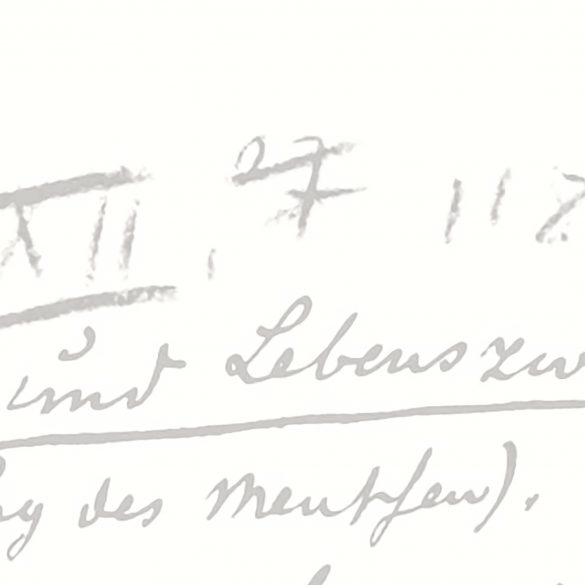 XII, 27 112
und Lebenszw
ng des Menschen).